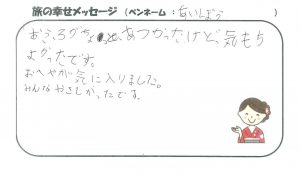 旅の幸せメッセージ (ペンネーム：ちいしぼう)
おふろがちょっと、あつかったけど気もち
よかったです。
おへやが気に入りました。
みんなやさしかったです。